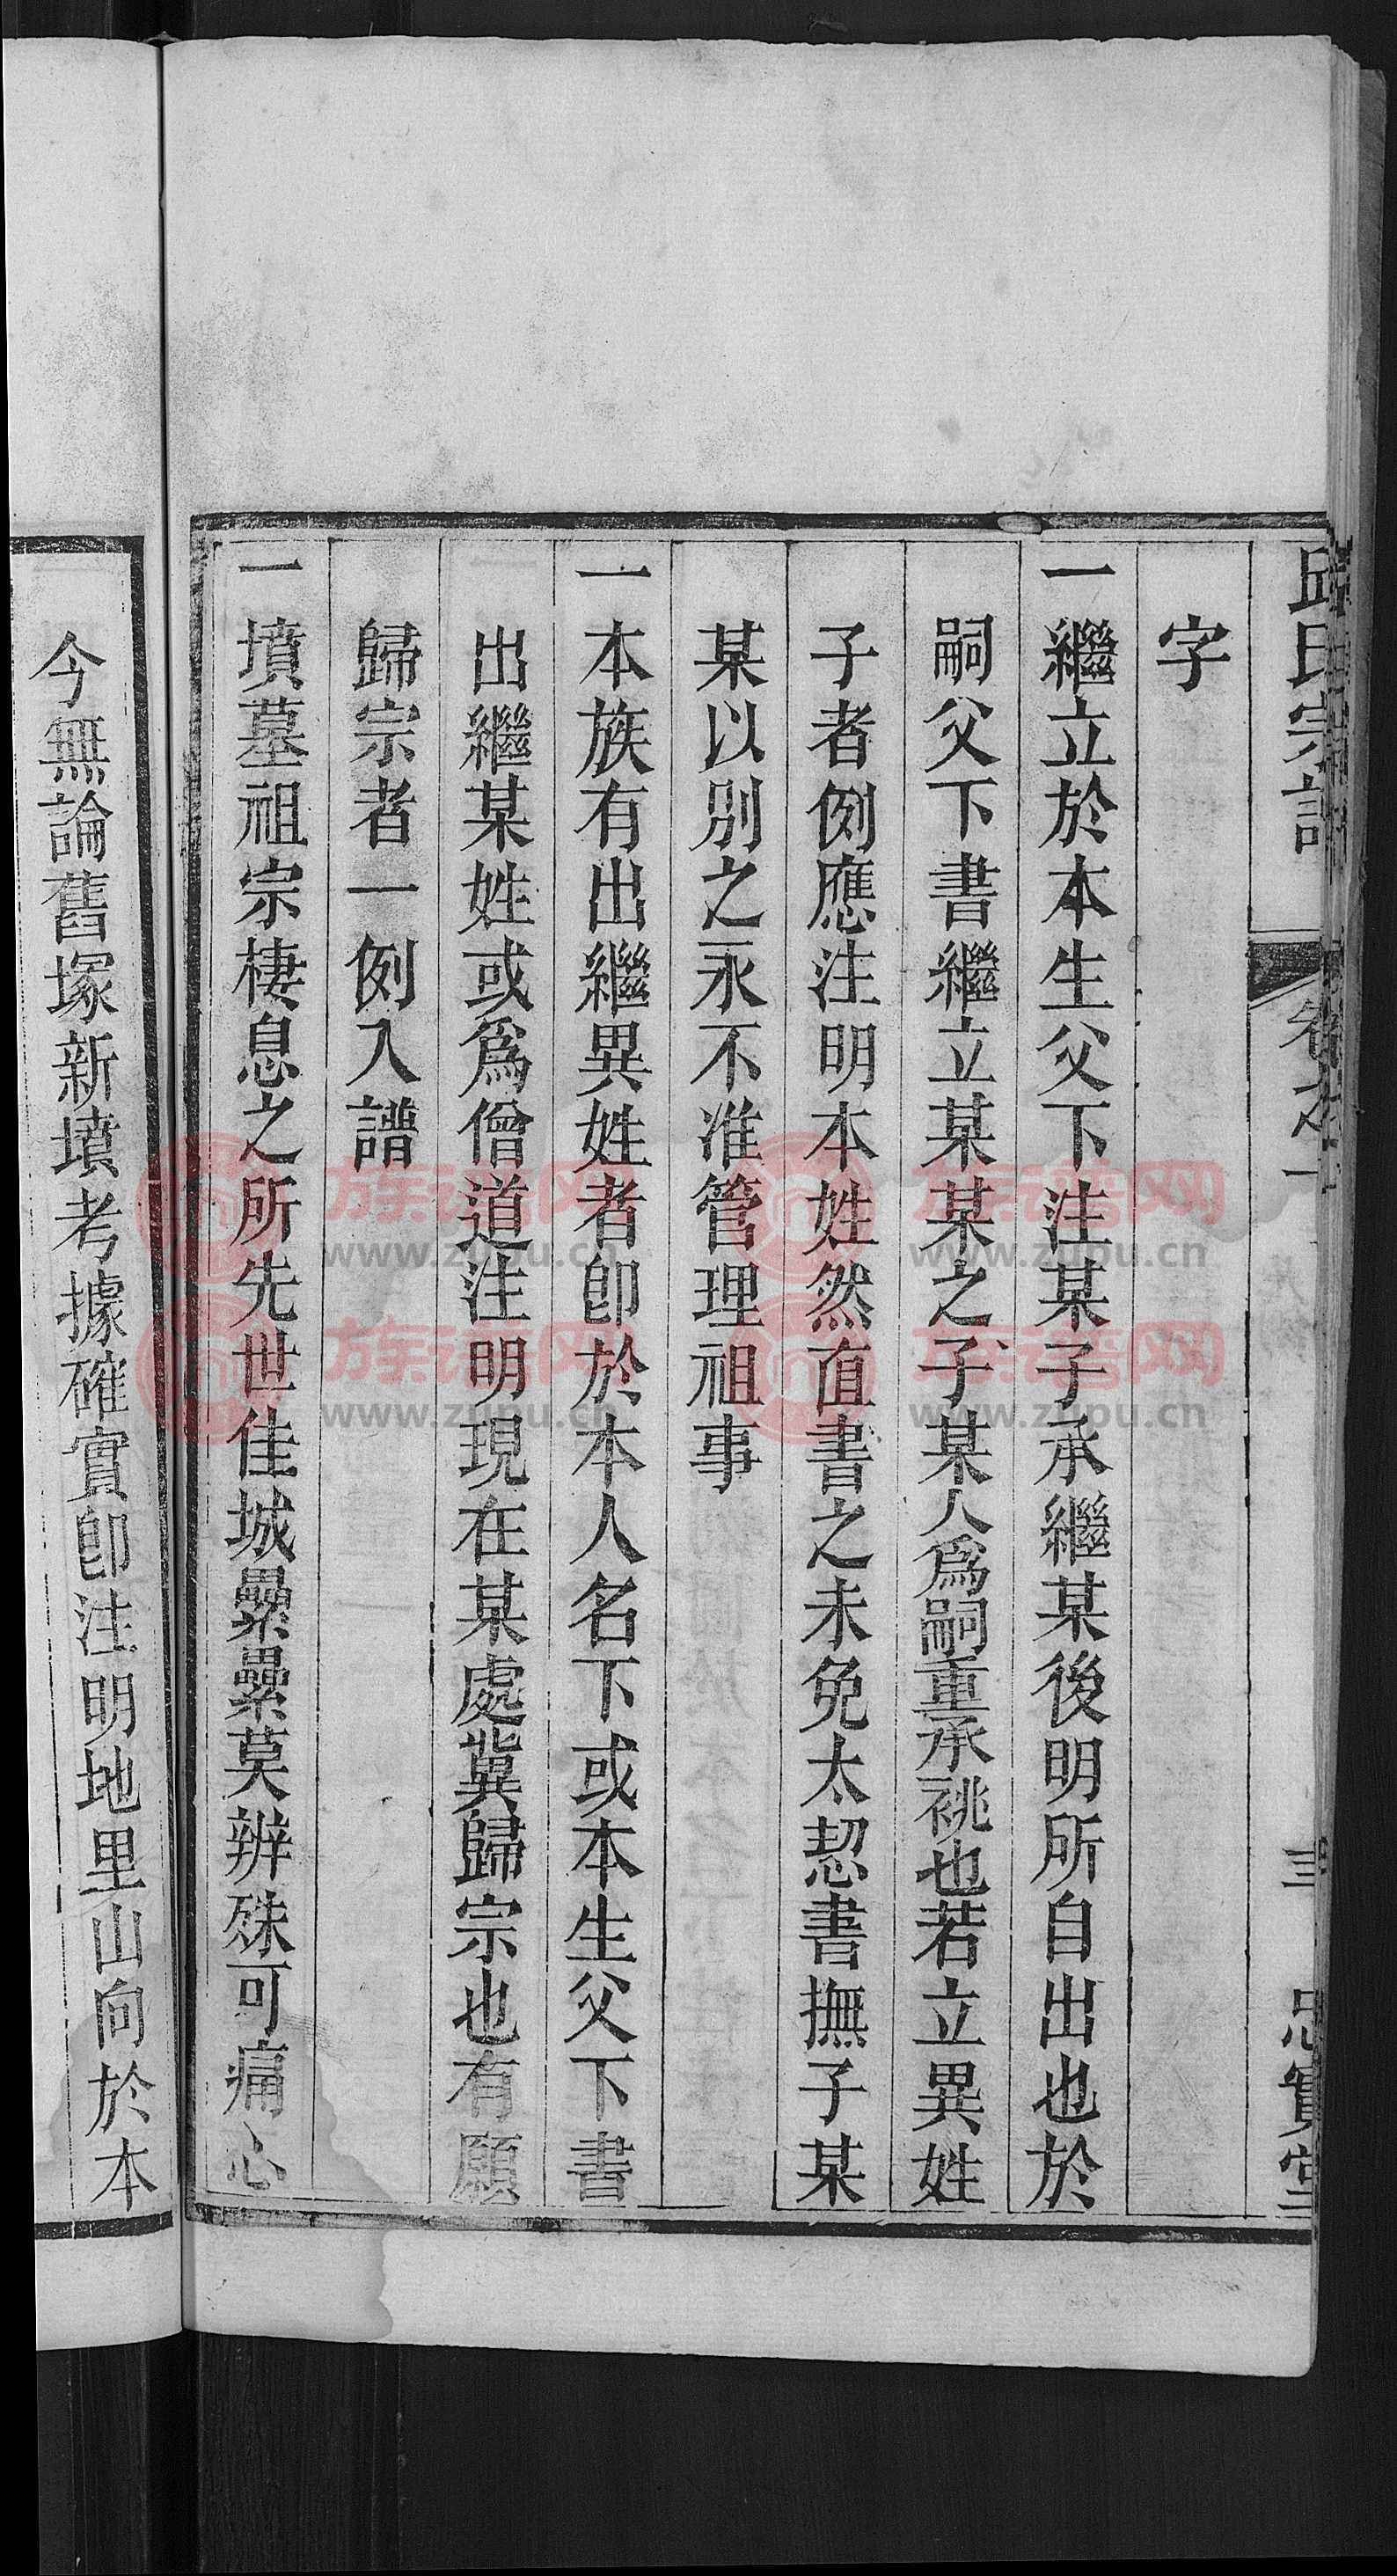 邱氏宗譜
卷之一
三
忠實堂
字
一繼立於本生父下注某子承繼某後明所自出也於
嗣父下書繼立某某之子某人爲嗣重承祧也若立異姓
子者例應注明本姓然直書之未免太恝書撫子某
某以別之永不准管理祖事
一本族有出繼異姓者卽於本人名下或本生父下書
出繼某姓或爲僧道注明現在某處冀歸宗也有願
歸宗者一例入譜
一墳墓祖宗棲息之所先世佳城纍纍莫辨殊可痛心
今無論舊塚新墳考據確實卽注明地里山向於本
族谱网
www.zupu.cn
族谱网
www.zupu.cn
族谱网
www.zupu.cn
族谱网
www.zupu.cn